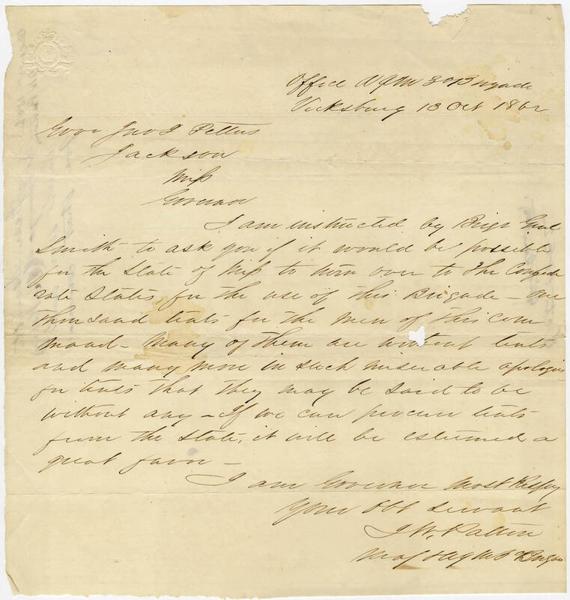 Office A Q M 3d Brigade
Vicksburg 13 Oct 1862
Gov Jno J Pettus
Jackson
Miss
Governor
I am instructed by Brig Genl
Smith to ask you if it would be possible
for the State of Miss to turn over to the Confed
rate States for the use of this Brigade - one
thousand tents for the men of this com
mand - Many of them are without tents
and many more in such miserable apologies
for tents that they may be said to be
without any - If we can procure tents
from the State, it will be esteemed a
great favor -
I am Governor Most Respy
Your Obt Servant
Maj &